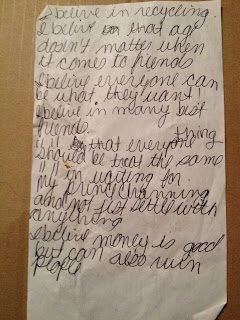 I belive in recycling.
I belive on that age
doesn't matter when
it comes to friends
I belive everyone can
be what they want!
I belive in many best
friends.
" " that everyone thing
should be treat the same
" " in waiting for
my princ channing
and not just settel with
anything
I belive money is good
but can also ruin
people